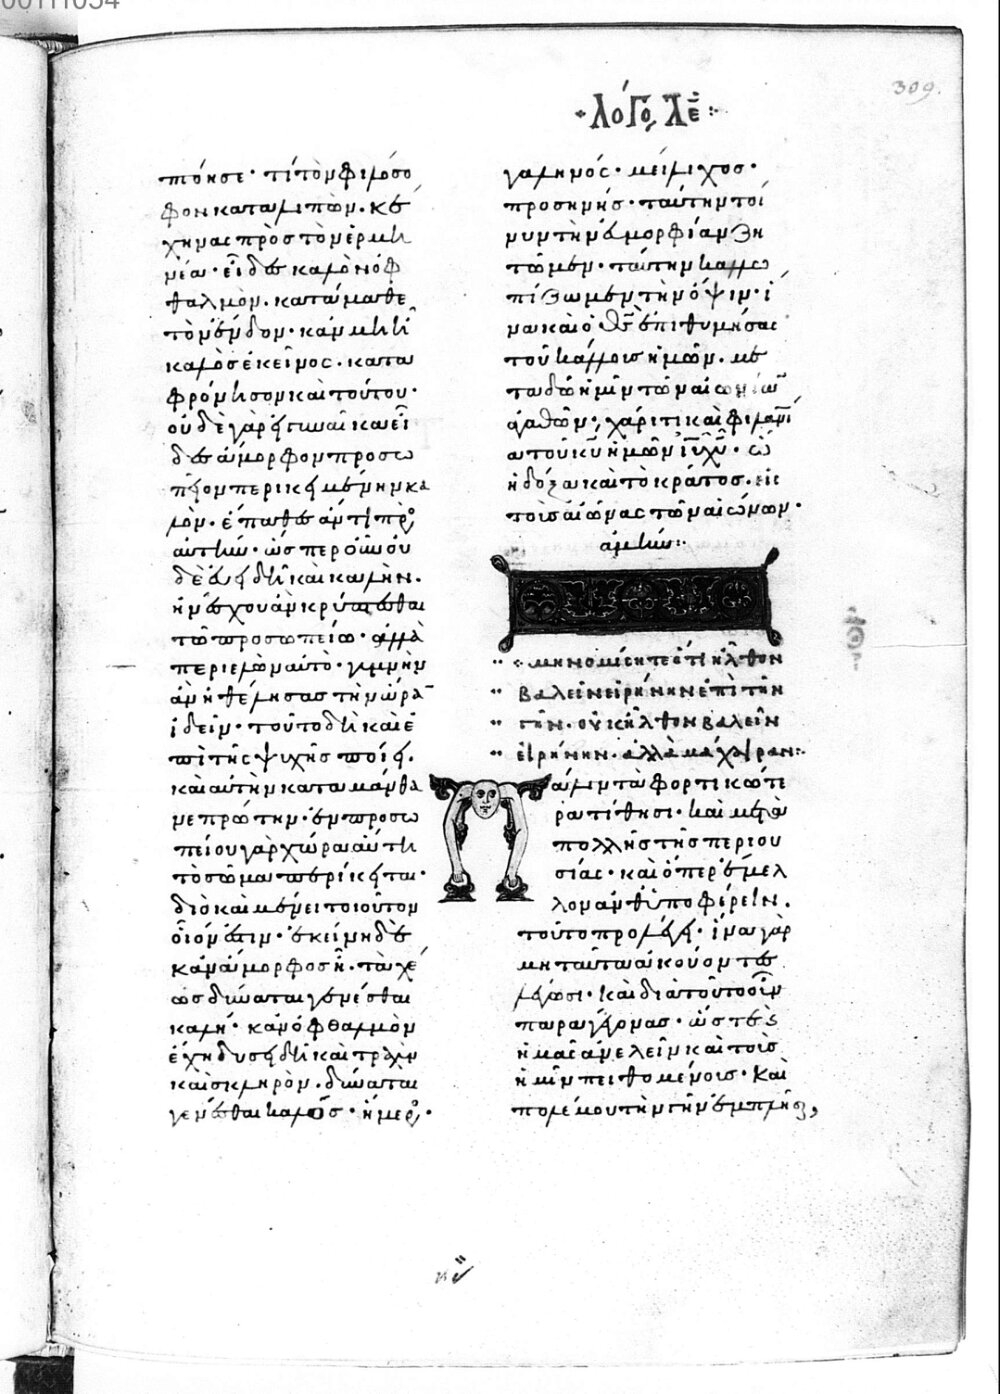 309.
λόγος λε
ποίησε· τί τὸν φιλόσο
φον καταλιπὼν. κέ
χηνας πρὸς τὸν ἑρμη
νέα· εἶδες καλὸν ὀφ
θαλμὸν. κατάμαθε
τὸν ἔνδον· κἂν μὴ ἦ
καλὸς ἐκεῖνος. κατα
φρόνησον καὶ τούτου·
οὐδὲ γὰρ εἰ γυναῖκα εἶ
δες ἄμορφον προσω
πεῖον περικειμένην κα
λὸν. ἔπαθες ἄν τι πρὸς
αὐτὴν· ὥσπερ οὖν οὐ
δὲ εἰ εὐειδῆ καὶ καλὴν.
ἠνέσχου ἂν κρύπτεσθαι
τῶ προσωπείω· ἀλλὰ
περιελὼν αὐτὸ· γυμνὴν
ἂν ἠθέλησας τὴν ὥραν
ἰδεῖν· τοῦτο δὴ καὶ ἐ
πὶ τῆς ψυχῆς ποίει.
καὶ αὐτὴν καταμάνθα
νε πρώτην· ἐν προσω
πείου γὰρ χώρα αὐτῆ
τὸ σῶμα περίκειται·
διὸ καὶ μένει τοιοῦτον
οἷόν ἐστιν· ἐκείνη δὲ
κἂν ἄμορφος ἦ. ταχέ
ως δύναται γενέσθαι
καλή· κἂν ὀφθαλμὸν
ἔχη δυσειδῆ καὶ τραχὺν
καὶ σκληρὸν. δύναται
γενέσθαι καλὸς· ἥμερος·
γαληνός· μείλιχος·
προσηνής· ταύτην τοί
νυν τὴν εὐμορφίαν ζη
τῶμεν· ταύτην καλλω
πίζωμεν τὴν ὄψιν· ἵ
να καὶ ὁ θς ἐπιθυμήσας
τοῦ κάλλους ἡμῶν. με
ταδῶ ἡμῖν τῶν αἰωνίων
ἀγαθῶν· χάριτι καὶ φιλανι
α τοῦ κυ ἡμῶν ιυ χυ· ὧ
ἡ δόξα καὶ τὸ κράτος. εἰς
τοὺς αἰῶνας τῶν αἰώνων·
ἀμὴν:
μὴ νομίσητε ὅτι ἦλθον
βαλεῖν εἰρήνην ἐπὶ τὴν
γῆν. οὐκ ἦλθον βαλεῖν
εἰρήνην. ἀλλὰ μάχαιραν:
Πάλιν τὰ φορτικώτε
ρα τίθησι· καὶ μετὰ
πολλῆς τῆς περιου
σίας· καὶ ὅπερ ἔμελ
λον ἀνθυποφέρειν.
τοῦτο προλέγει· ἵνα γὰρ
μὴ ταῦτα ἀκούοντες
λέγωσι· καὶ διὰ τοῦτο οὖν
παραγέγονας· ὥστε
ἡμᾶς ἀνελεῖν καὶ τοὺς
ἡμῖν πειθομένους· καὶ
πολέμου τὴν γῆν ἐμπλῆσαι,